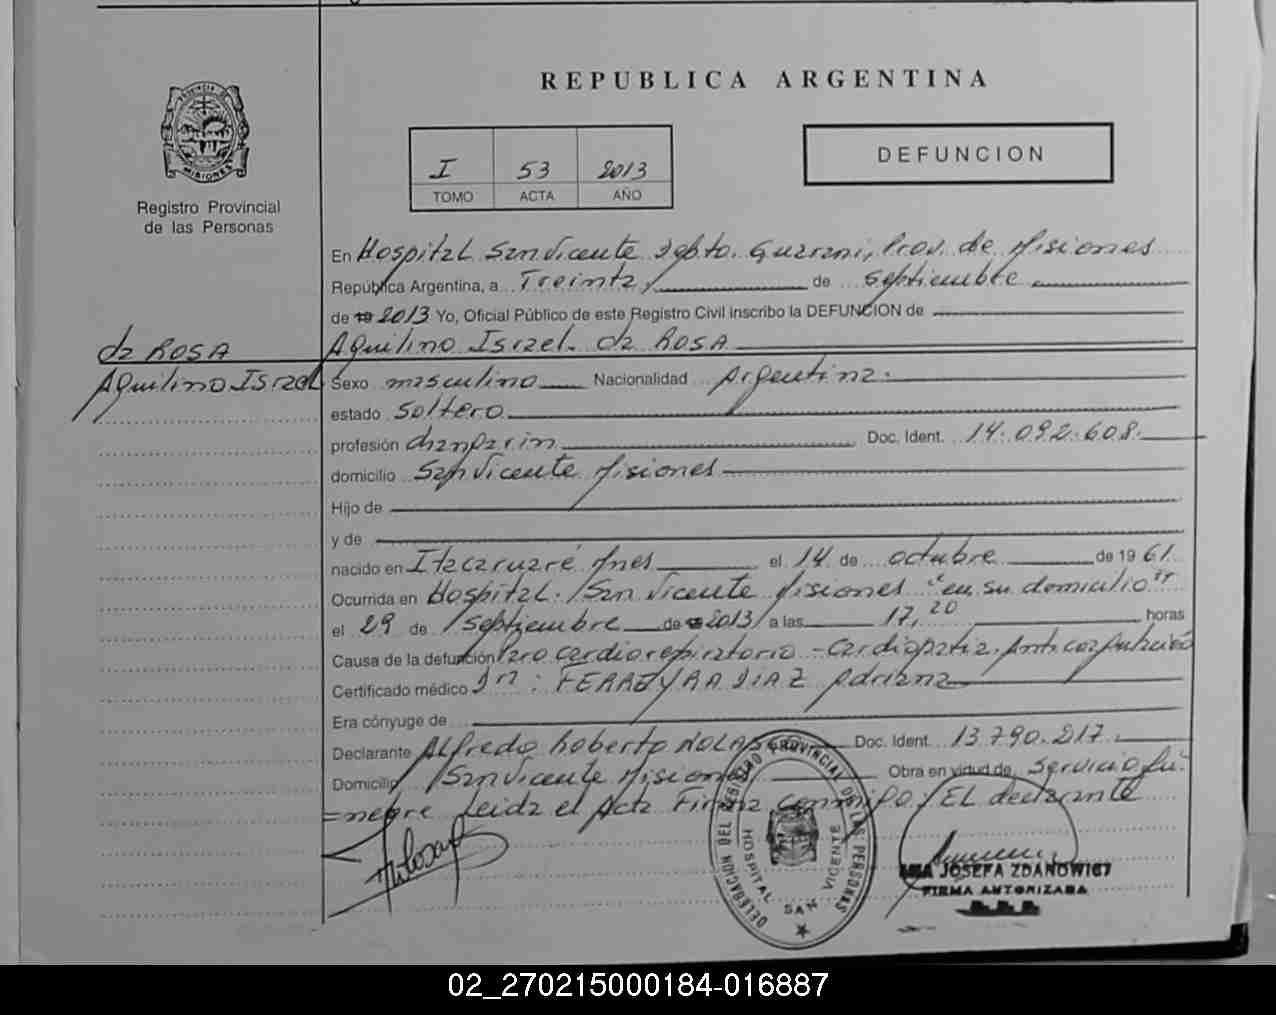 REPUBLICA ARGENTINA
PROVINCIA DE
MISIONES
Registro Provincial
de las Personas
I 53 2013
TOMO ACTA AÑO
DEFUNCION
En Hospital San Vicente Depto. Guarani, Prov. de Misiones
República Argentina, a Treinta de septiembre
de 19 2013 Yo, Oficial Público de este Registro Civil inscribo la DEFUNCION de
da ROSA
Aquilino Israel
Aquilino Israel da ROSA
Sexo masculino Nacionalidad Argentina.
estado soltero
profesión chanparin Doc. Ident. 14.092.608.
domicilio San Vicente Misiones
Hijo de
y de
nacido en Itacaruaré Mnes el 14 de octubre de 19 61.
Ocurrida en Hospital San Vicente Misiones "en su domicilio"
el 29 de septiembre de 2013 a las 17,20 horas
Causa de la defunción Paro cardiorepiratorio - cardiopatia.
Certificado médico Dra: FERREYRA DIAZ Adriana
Era cónyuge de
Declarante Alfredo Roberto Doc. Ident. 13.790.217.
Domicilio San Vicente Misiones Obra en virtud de servicio fu-
=nebre Leida el Acta Firma conmigo EL declarante
DELEGACION DEL REGISTRO PROVINCIAL DE LAS PERSONAS
HOSPITAL SAN VICENTE
JOSEFA ZDANOWICZ
FIRMA AUTORIZADA
02_270215000184-016887